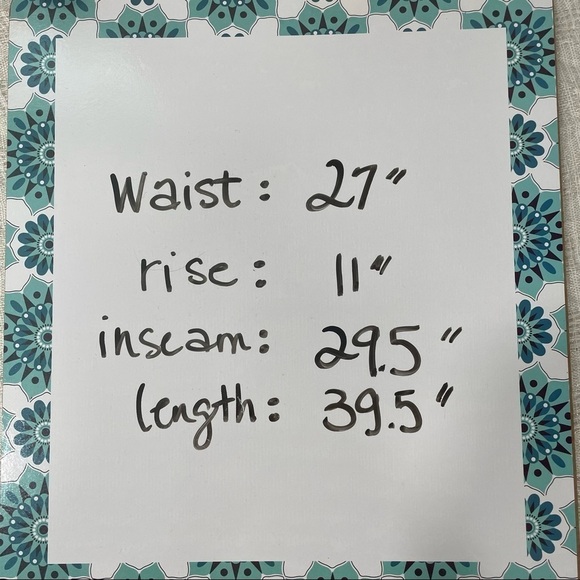 Waist: 27"
rise: 11"
inseam: 29.5"
length: 39.5"